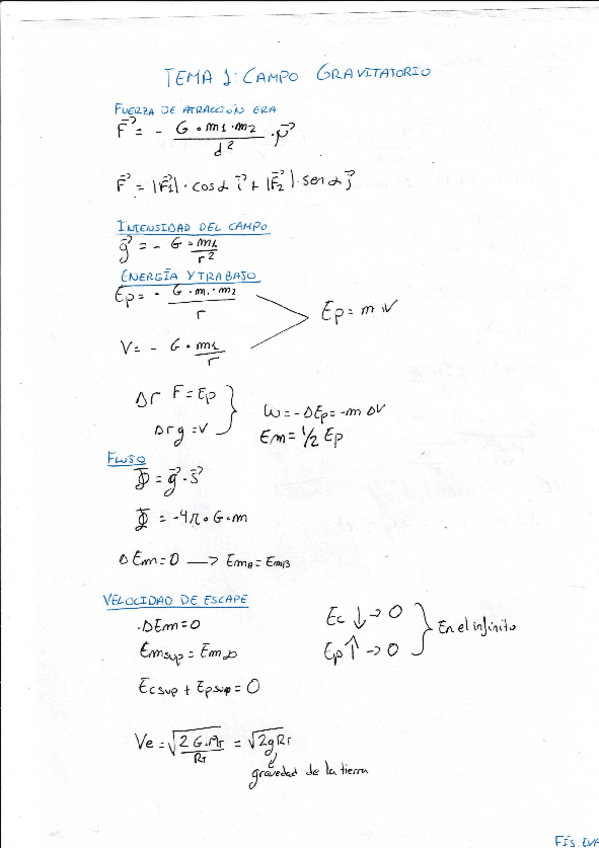 TEMA 1: CAMPO GRAVITATORIO
FUERZA DE ATRACCIÓN ERA
F⃗ = - G · m1 · m2 / d² · μ⃗
F⃗ = |F⃗1| · cos α i⃗ + |F⃗2| · sen α j⃗
INTENSIDAD DEL CAMPO
g⃗ = - G · m1 / r²
ENERGÍA Y TRABAJO
Ep = - G · m1 · m2 / r
Ep = m · V
V = - G · m1 / r
Δr F = Ep
Δr g = V
W = -ΔEp = -m ΔV
Em = 1/2 Ep
FLUJO
Φ = g⃗ · S⃗
Φ = -4π · G · m
ΔEm = 0 → EmA = EmB
VELOCIDAD DE ESCAPE
·ΔEm = 0
Emsup = Em∞
Ecsup + Epsup = 0
Ec ↓ → 0
Ep ↑ → 0
En el infinito
Ve = √(2 G · Mr / Rr) = √(2gRr)
gravedad de la tierra